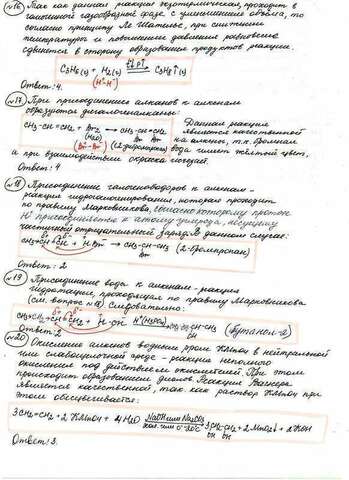 №16 Так как данная реакция экзотермическая, проходит в
газообразной фазе с уменьшением объема, то
согласно принципу Ле Шателье, при снижении
температуры и повышении давления равновесие
сдвинется в сторону образования продуктов реакции.
C3H6(г) + H2(г) C3H8↑(г)
(H+H-)
Ответ: 4.
№17 При присоединении к алкенам
образуются дигалогеналканы:
CH3-CH=CH2 + Br2 → CH3-CH-CH2
(H2O) Br Br
Данная реакция
является качественной
на алкены, т.к. бромная
вода имеет жёлтый цвет,
а при взаимодействии окраска исчезает.
Ответ: 4
№18 Присоединение галогеноводородов к алкенам -
реакция гидрогалогенирования, которая проходит
по правилу Марковникова, согласно которому протон
H+ присоединяется к атому углерода, несущему
частичный отрицательный заряд. В данном случае:
HBr → CH3-CH-CH3 (2-бромпропан)
Br
Ответ: 2
№19 Присоединение воды к алкенам - реакция
гидратации, проходящая по правилу Марковникова
(см. вопрос Следовательно:
(бутанол-2)
Ответ: 2
№20 Окисление алкенов водным р-ром KMnO4 в нейтральной
или слабощелочной среде - реакция неполного
окисления под действием окислителей. При этом
происходит образование диолов. Реакция Вагнера
является качественной, так как раствор KMnO4 при
этом обесцвечивается:
3CH2=CH2 + 2KMnO4 + 4H2O → 3CH2-CH2 + 2MnO2↓ + 2KOH
OH OH
Ответ: 3.